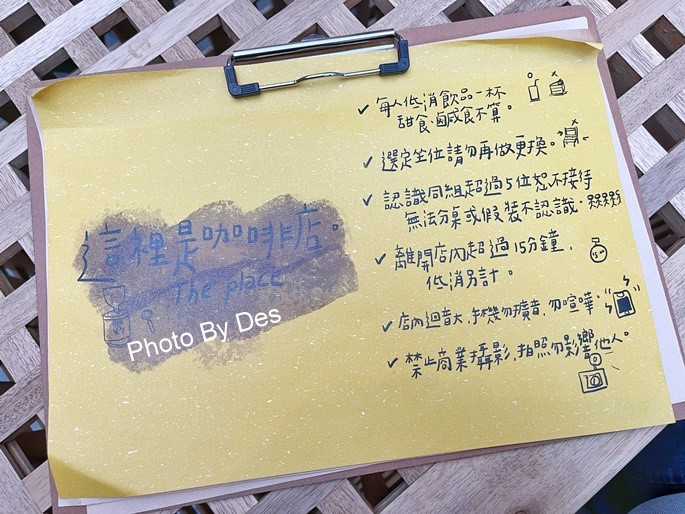 這裡是咖啡店。
The place
Photo By Des
✓ 每人低消飲品一杯
甜食.鹹食不算。
✓ 選定坐位請勿再做更換。
✓ 認識同組超過5位恕不接待
無法分桌或假裝不認識.
✓ 離開店內超過15分鐘,
低消另計。
✓ 店內迴音大,手機勿擴音,勿喧嘩.
✓ 禁止商業攝影,拍照勿影響他人。